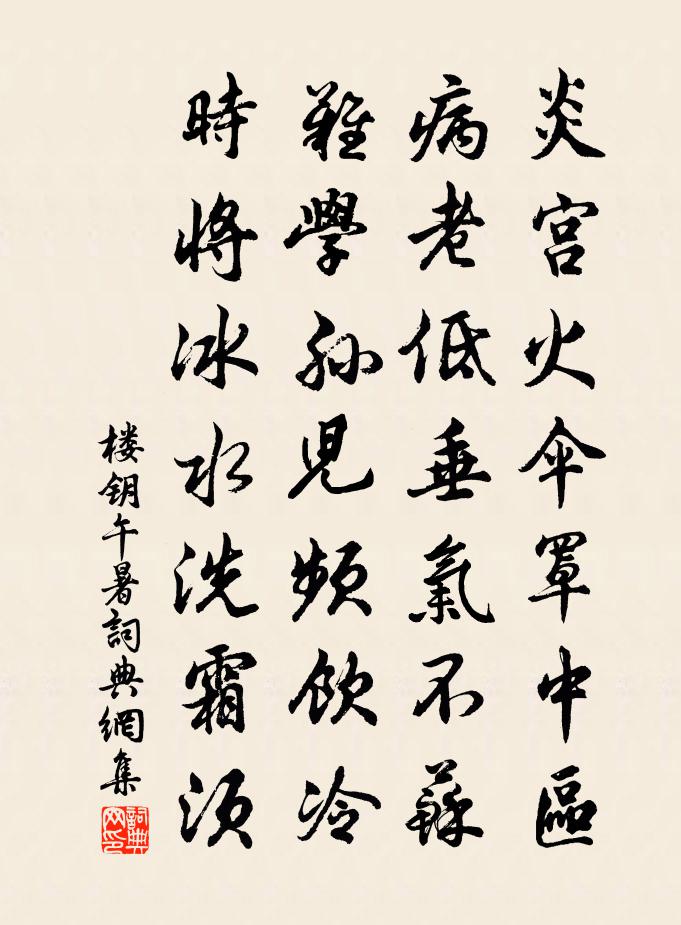 炎宫火伞罩中區
病老低垂氣不蘇
難學孫児頻飲冷
時將冰水洗霜須
楼钥午暑詞典網集
詞典网印